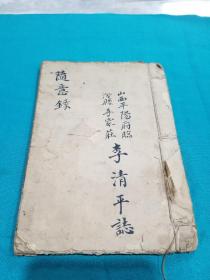 山西平陽府臨
汾縣李家莊
李清平誌
隨意錄